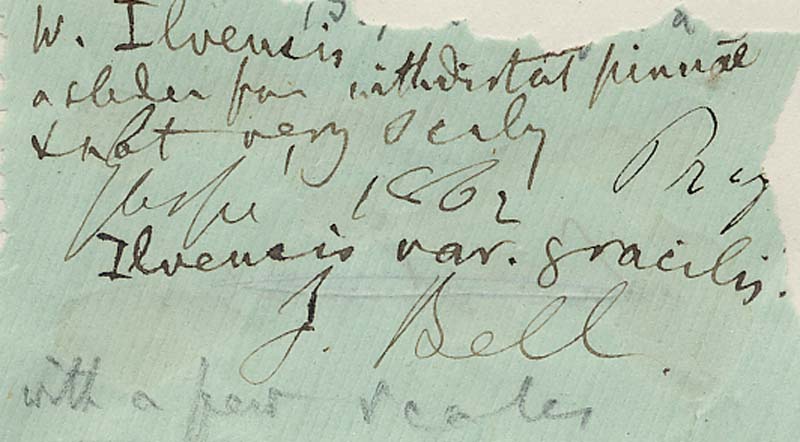 W. Ilvensis
a slender form with distant pinnae
& not very scaly
Gaspé 1862 Pray
Ilvensis var. gracilis.
J. Bell
with a few scales